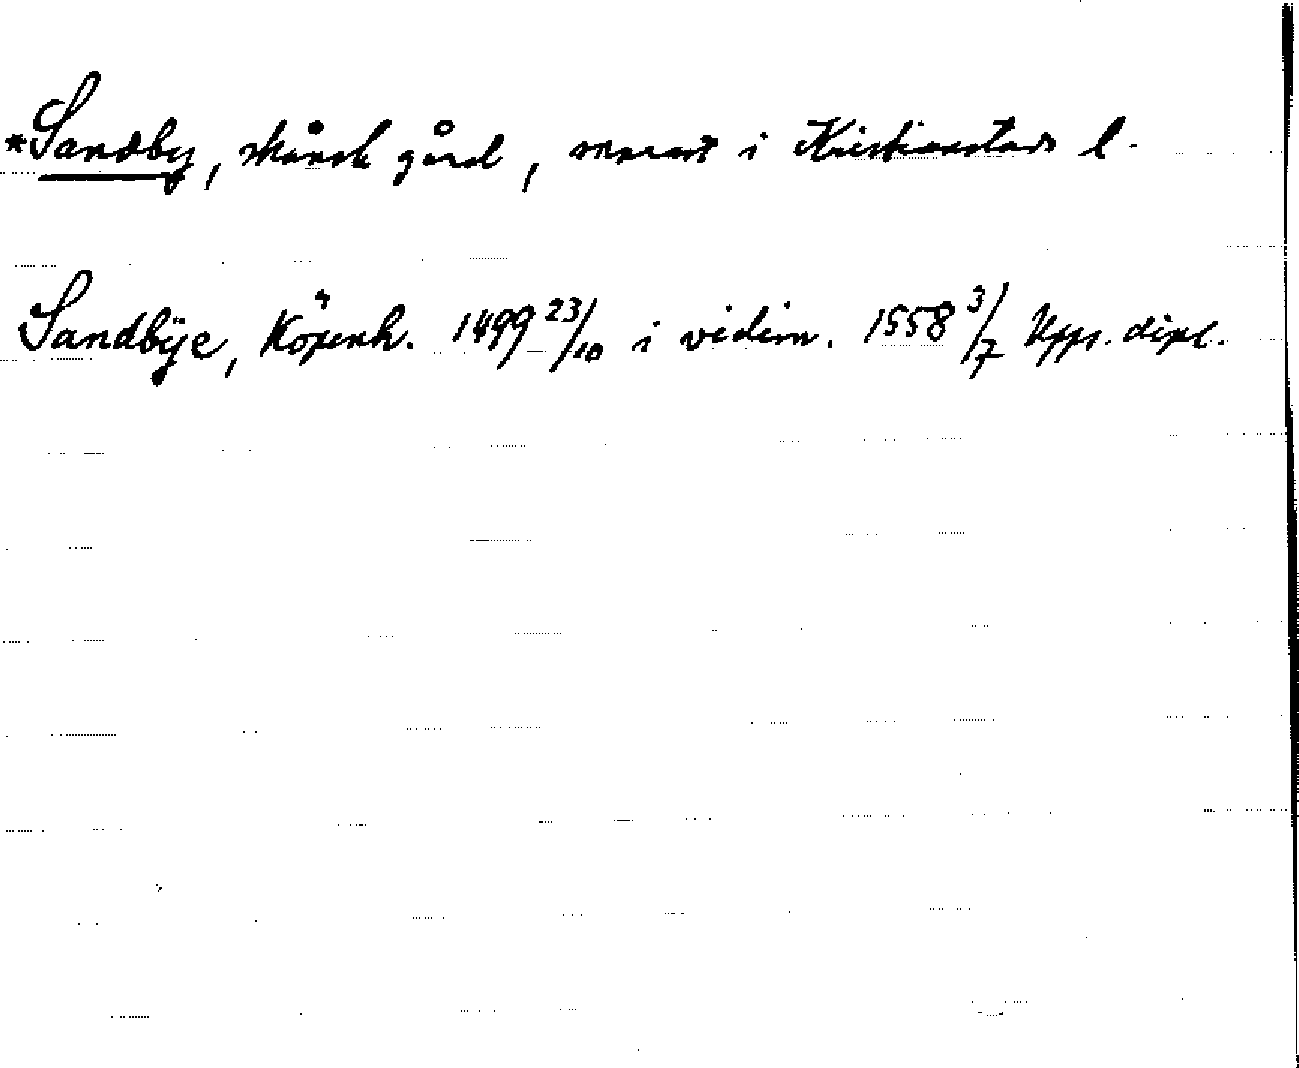 *Sandby, skånsk gård, snarast i Kristianstads l.
Sandbÿe, Köpenh. 1499 23/10 i vidim. 1558 3/7 Upps. dipl.